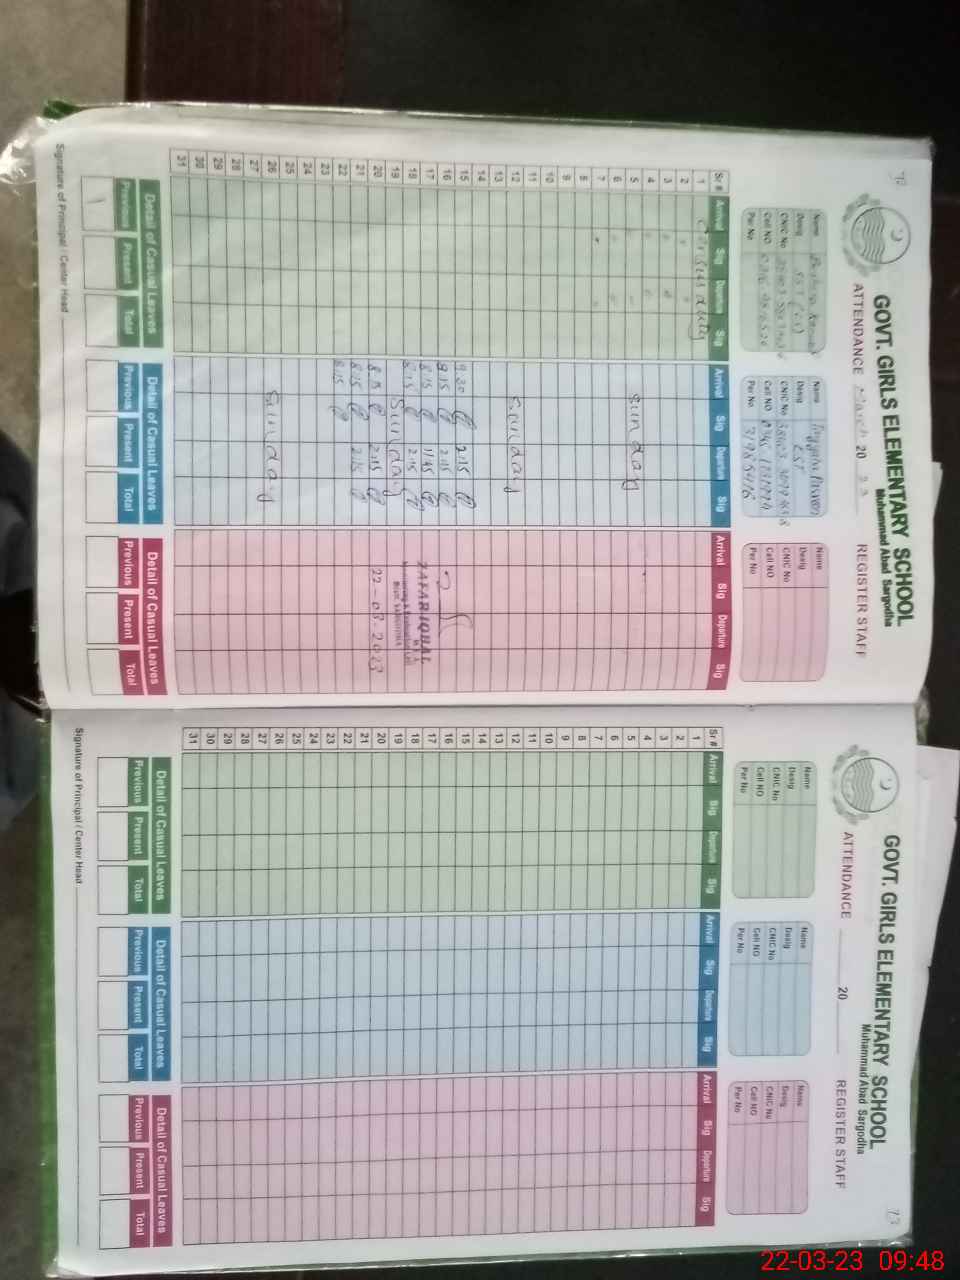 72
GOVT. GIRLS ELEMENTARY SCHOOL
Muhammad Abad Sargodha
ATTENDANCE March 20 23 REGISTER STAFF
Name
Desig SST
CNIC No
Cell NO
Per No
Name Tayyaba
Desig EST
CNIC No
Cell NO
Per No 31985416
Name
Desig
CNIC No
Cell NO
Per No
Sr # Arrival Sig Departure Sig Arrival Sig Departure Sig Arrival Sig Departure Sig
1 Census duty
2
3
4
5 Sunday
6
7
8
9
10
11
12 Sunday
13
14
15 9:30 2:15
16 9:15 2:15
17 8:15 11:45
18 8:15 2:15
19 Sunday
20 8:15 2:15
21 8:15 2:15
22 8:15
23
24
25
26 Sunday
27
28
29
30
31
ZAFAR IQBAL
M E A
Monitoring & Evaluation Cell
Distt. SARGODHA
22-03-2023
Detail of Casual Leaves Detail of Casual Leaves Detail of Casual Leaves
Previous Present Total Previous Present Total Previous Present Total
1
Signature of Principal / Center Head
73
GOVT. GIRLS ELEMENTARY SCHOOL
Muhammad Abad Sargodha
ATTENDANCE 20 REGISTER STAFF
Name
Desig
CNIC No
Cell NO
Per No
Name
Desig
CNIC No
Cell NO
Per No
Name
Desig
CNIC No
Cell NO
Per No
Sr # Arrival Sig Departure Sig Arrival Sig Departure Sig Arrival Sig Departure Sig
1
2
3
4
5
6
7
8
9
10
11
12
13
14
15
16
17
18
19
20
21
22
23
24
25
26
27
28
29
30
31
Detail of Casual Leaves Detail of Casual Leaves Detail of Casual Leaves
Previous Present Total Previous Present Total Previous Present Total
Signature of Principal / Center Head
22-03-23 09:48